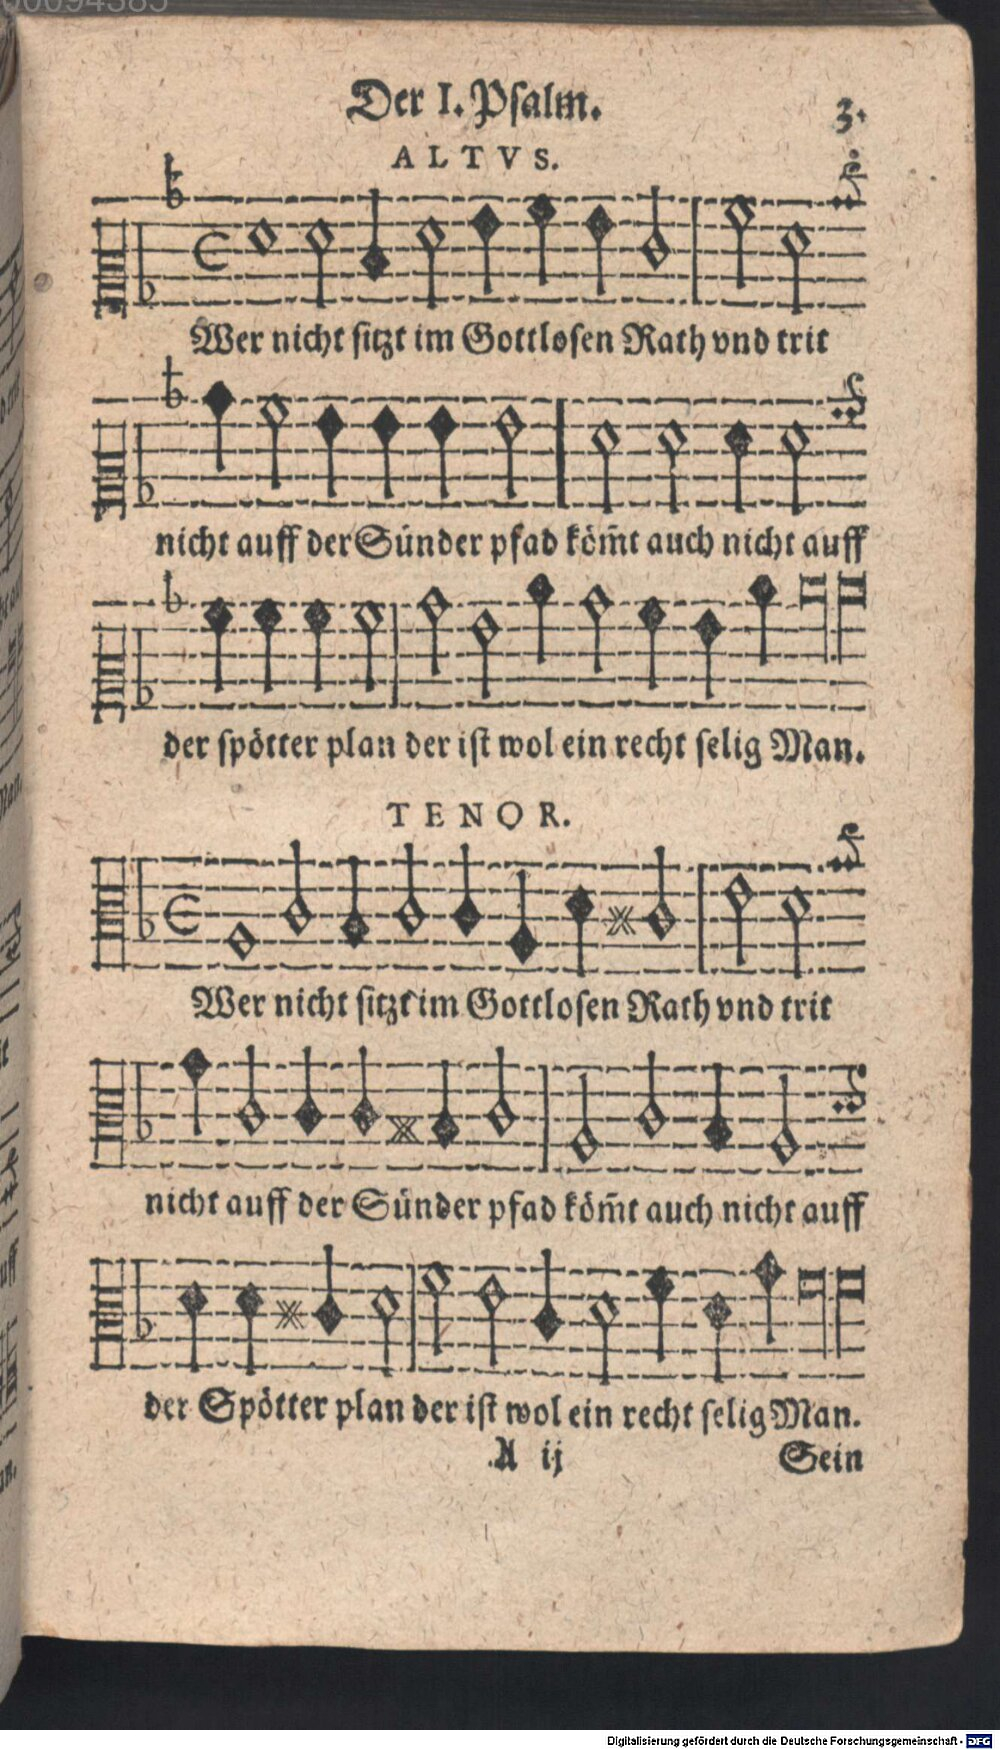 00094385
Der I. Psalm. 3.
ALTVS.
Wer nicht sitzt im Gottlosen Rath vnd trit
nicht auff der Sünder pfad köm̄t auch nicht auff
der spötter plan der ist wol ein recht selig Man.
TENOR.
Wer nicht sitzt im Gottlosen Rath vnd trit
nicht auff der Sünder pfad köm̄t auch nicht auff
der Spötter plan der ist wol ein recht selig Man.
A ij Sein
Digitalisierung gefördert durch die Deutsche Forschungsgemeinschaft - DFG